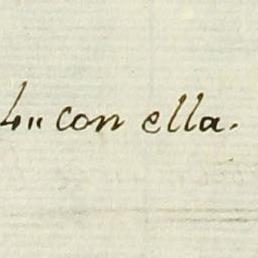 4„ con ella.